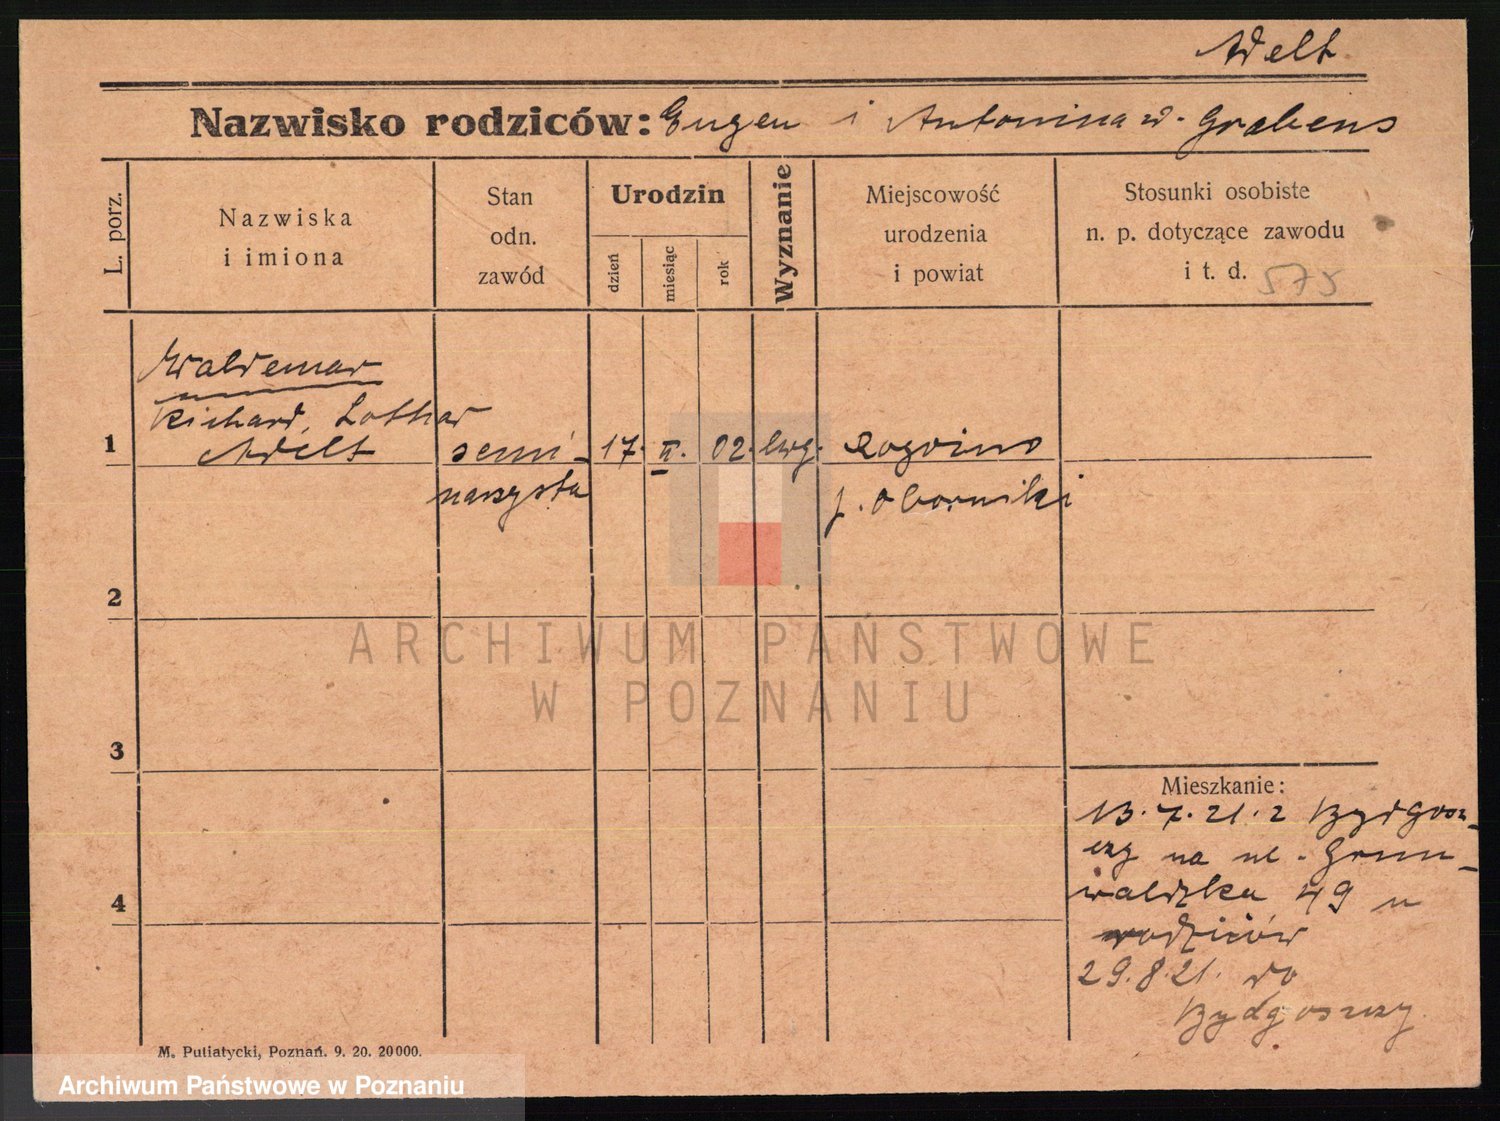 Adelt
Nazwisko rodziców: Eugen i Antonina w. Grabens
L. porz.
Nazwiska
i imiona
Stan
odn.
zawód
Urodzin
dzień
miesiąc
rok
Wyznanie
Miejscowość
urodzenia
i powiat
Stosunki osobiste
n. p. dotyczące zawodu
i t. d. 575
Waldemar
Richard, Lothar
1 Adelt semi- 17. II. 02. ewg. Rogoźno
narzysta p. Oborniki
2
3
4
Mieszkanie:
13.7.21. z Bydgosz-
czy na ul. Grun-
waldzka 49 u
rodziców
29.8.21. do
Bydgoszczy.
M. Putiatycki, Poznań. 9. 20. 20000.
ARCHIWUM PAŃSTWOWE
W POZNANIU
Archiwum Państwowe w Poznaniu